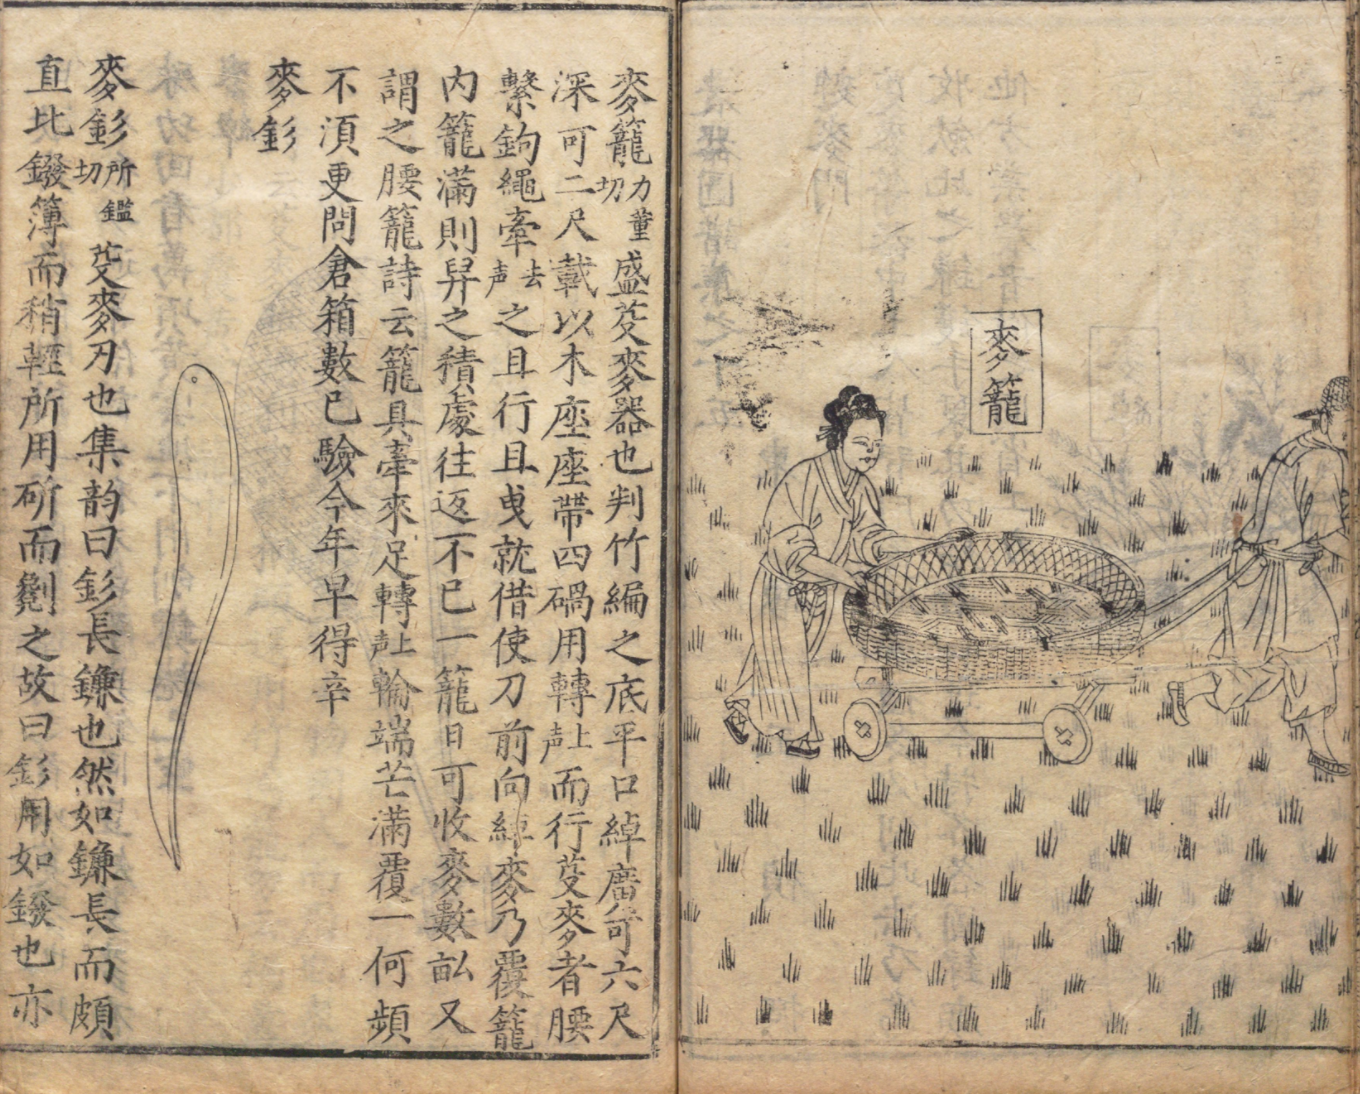 麥籠
麥籠力董切盛芟麥器也判竹編之底平口綽廣可六尺
深可二尺載以木座座帶四碢用轉上声而行芟麥者腰
繫鉤繩牽去声之且行且曳就借使刀前向綽麥乃覆籠
内籠滿則舁之積處往返不已一籠日可收麥數畝又
謂之腰籠詩云籠具牽來足轉上声輪端芒滿覆一何頻
不湏更問倉箱數已驗今年早得辛
麥釤
麥釤所鑑切芟麥刃也集韵曰釤長鐮也然如鐮長而頗
直比鏺簿而稍輕所用斫而劖之故曰釤用如鏺也亦